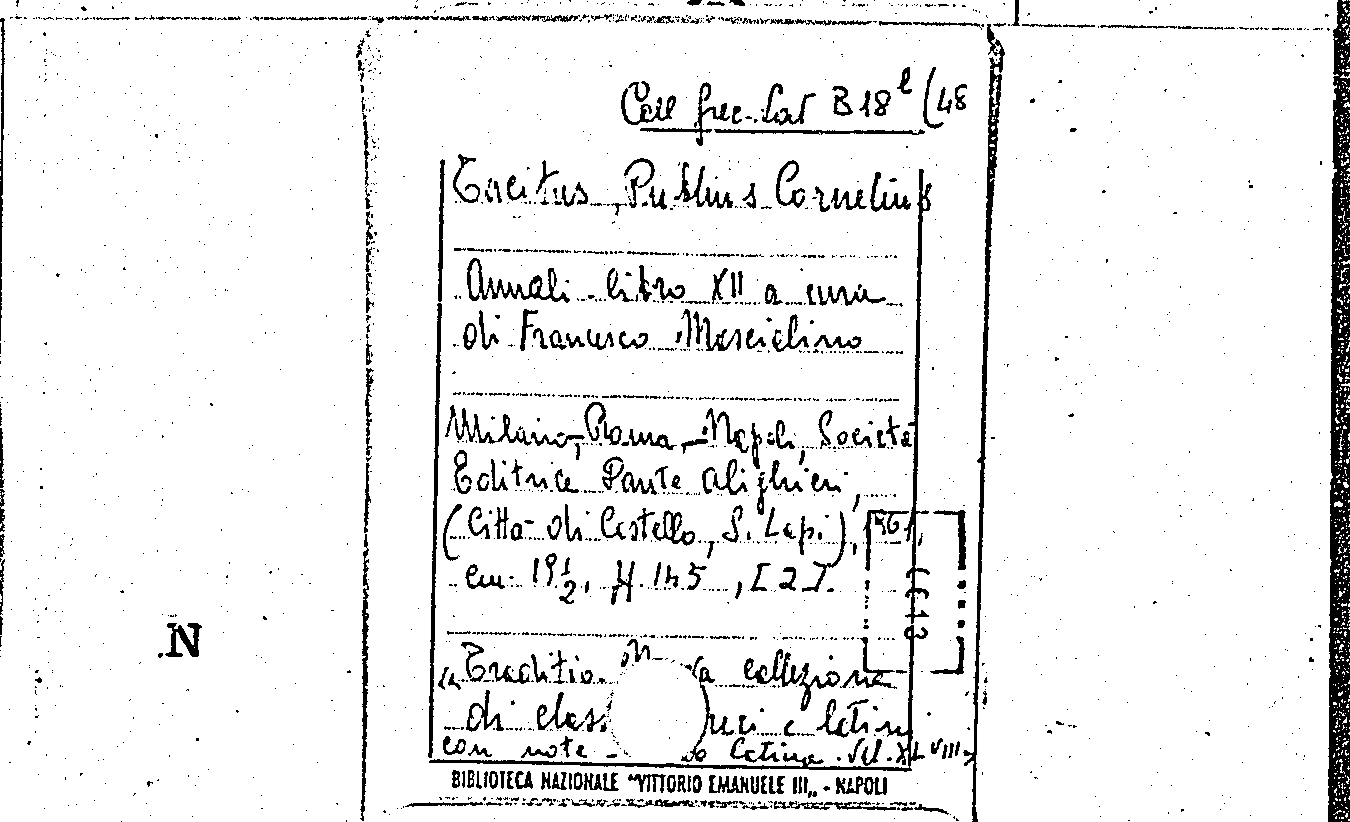 Coll grec-lat B 18 l (48
Tacitus, Publius Cornelius
Annali - libro XII a cura
di Francesco Mascialino
Milano, Roma, Napoli, Società
Editrice Dante Alighieri,
(Città di Castello, S. Lapi),
cm 19½, pp. 145, [2].
N
"Traditio. N a collezione
di class reci e latini
con note - Latina. Vol. XLVIII
BIBLIOTECA NAZIONALE "VITTORIO EMANUELE III„ - NAPOLI